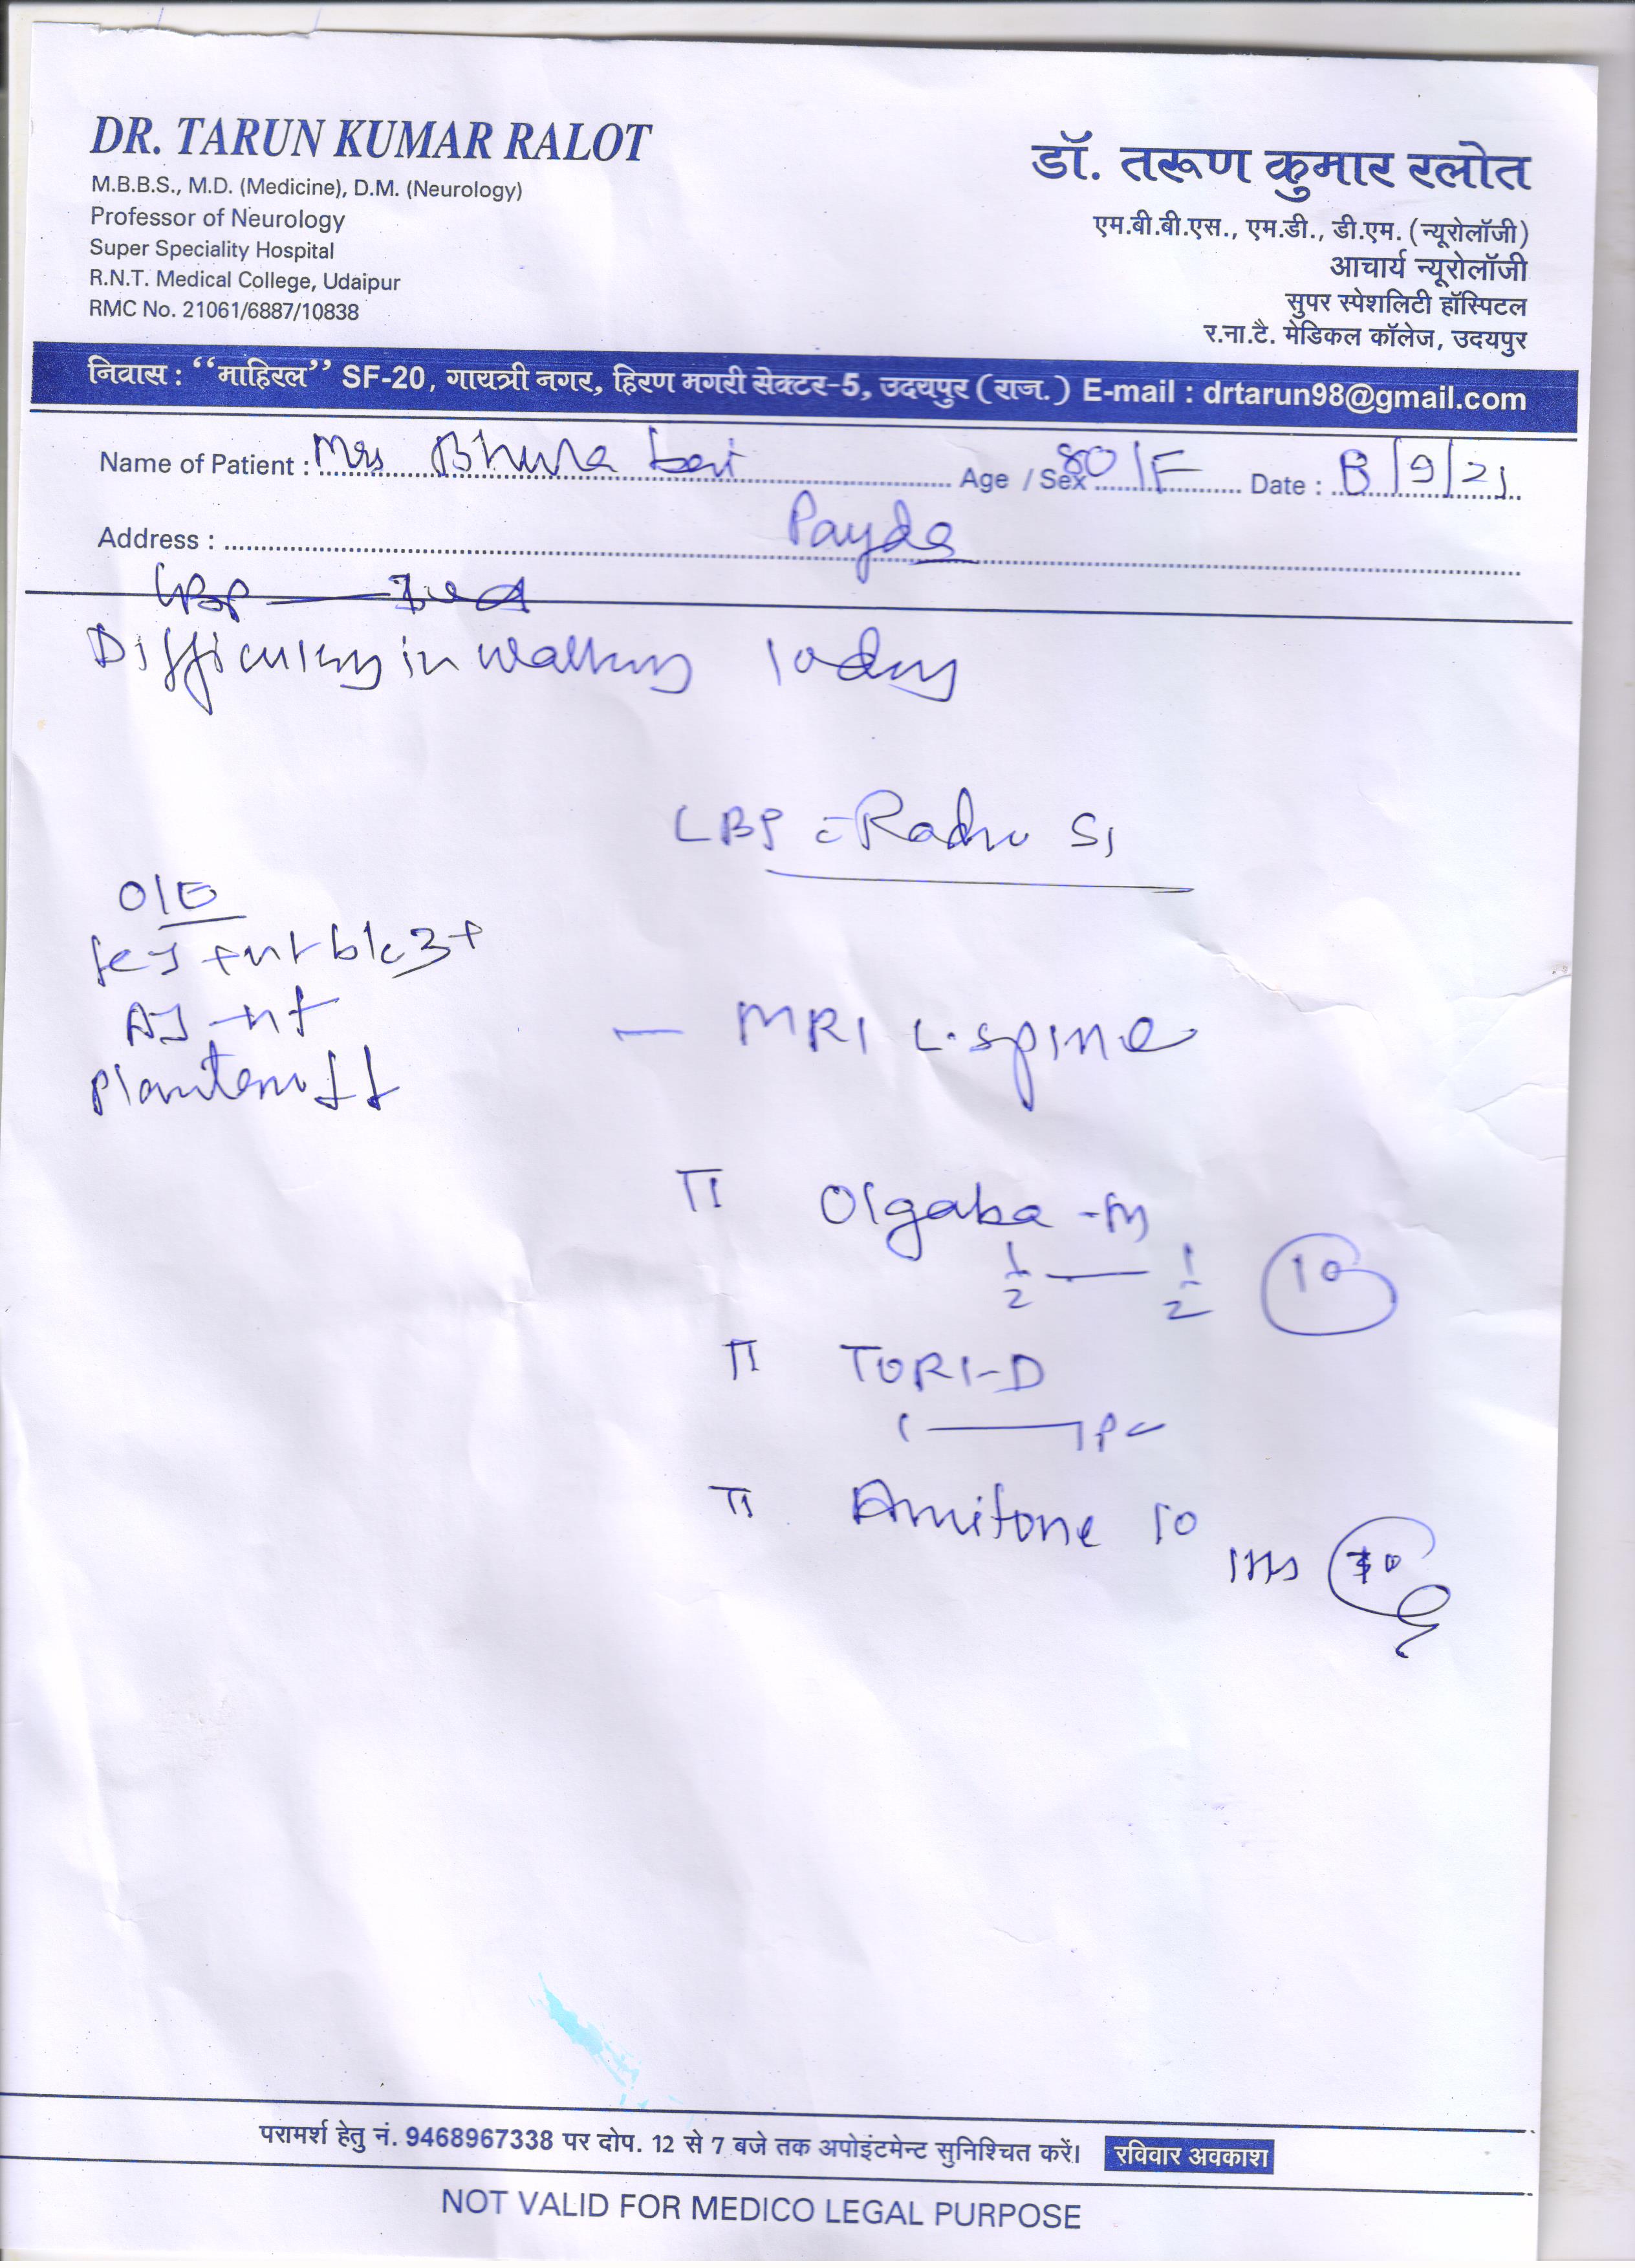 DR. TARUN KUMAR RALOT
M.B.B.S., M.D. (Medicine), D.M. (Neurology)
Professor of Neurology
Super Speciality Hospital
R.N.T. Medical College, Udaipur
RMC No. 21061/6887/10838
डॉ. तरूण कुमार रलोत
एम.बी.बी.एस., एम.डी., डी.एम. (न्यूरोलॉजी)
आचार्य न्यूरोलॉजी
सुपर स्पेशलिटी हॉस्पिटल
र.ना.टै. मेडिकल कॉलेज, उदयपुर
निवास : "माहिरल" SF-20, गायत्री नगर, हिरण मगरी सेक्टर-5, उदयपुर (राज.) E-mail : drtarun98@gmail.com
Name of Patient : Mrs Bhura bai Age / Sex 80/F Date : /9/21
Address : Payda
LBP
Difficulty in walking 10 day
LBP Radic S1
O/E
KJ b/l 3+
AJ
Plantar
— MRI L. spine
Olgaba -M
1/2 — 1/2 10
TORI-D
1 — 1 PC
Amitone 10
1 HS
परामर्श हेतु नं. 9468967338 पर दोप. 12 से 7 बजे तक अपोइंटमेन्ट सुनिश्चित करें। रविवार अवकाश
NOT VALID FOR MEDICO LEGAL PURPOSE